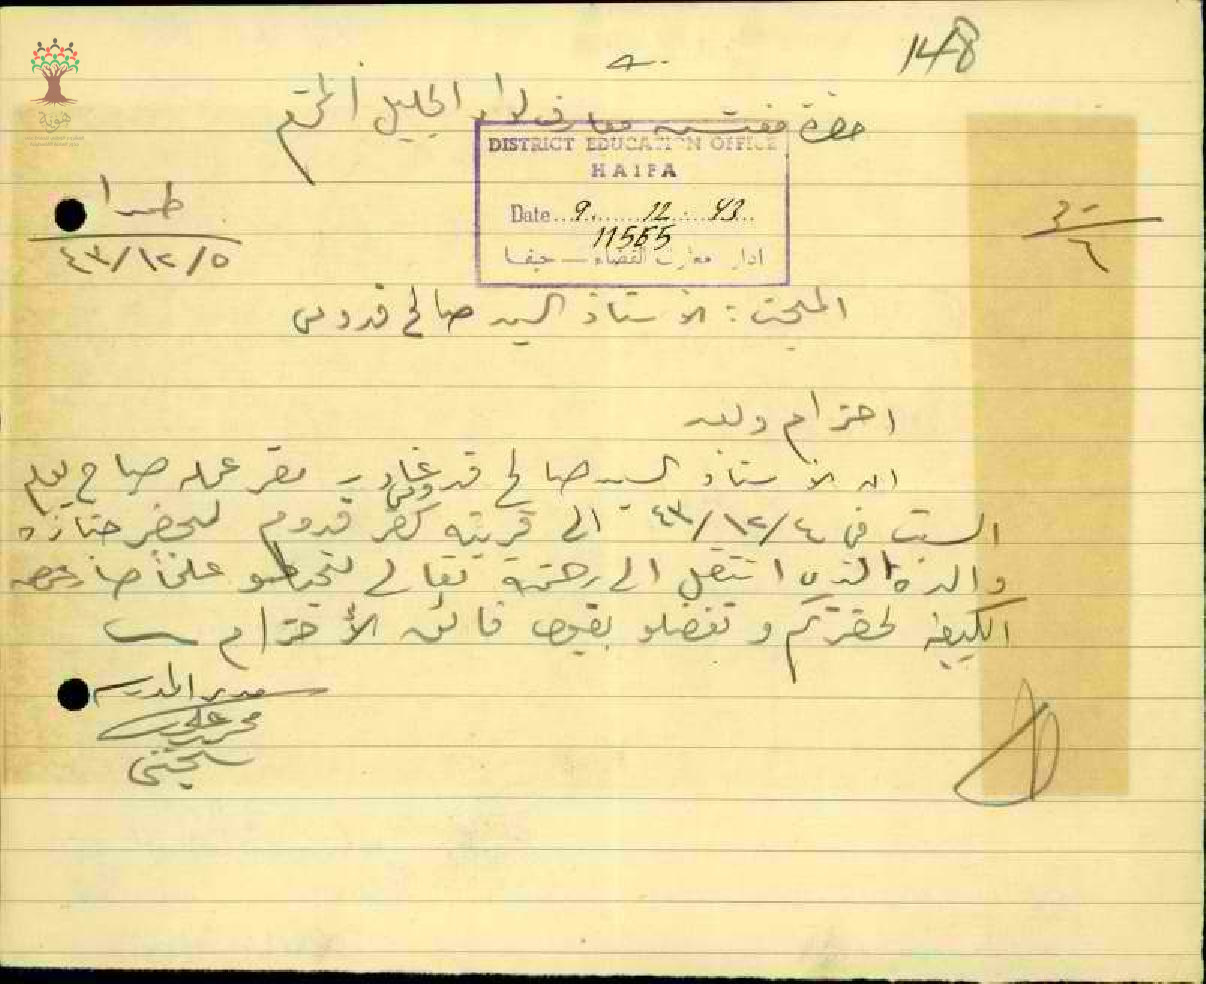 148
حضرة مفتش معارف لواء الجليل المحترم
DISTRICT EDUCATION OFFICE
HAIFA
Date 9. 12. 43
11565
ادارة معارف القضاء — حيفا
طمرا
٤٣/١٢/٥
٦
المبحث: الأستاذ السيد صالح قدومي
احترام وبعد
ان الأستاذ السيد صالح قدومي غادر مقر عمله صباح يوم
السبت في ٤/١٢/٤٣ الى قريته كفر قدوم ليحضر جنازة
والده الذي انتقل الى رحمته تعالى لتحيطو علماً
الكيفية لحضرتكم وتفضلو بقبول فائق الأحترام
مدير المدرسة
علي
هوية